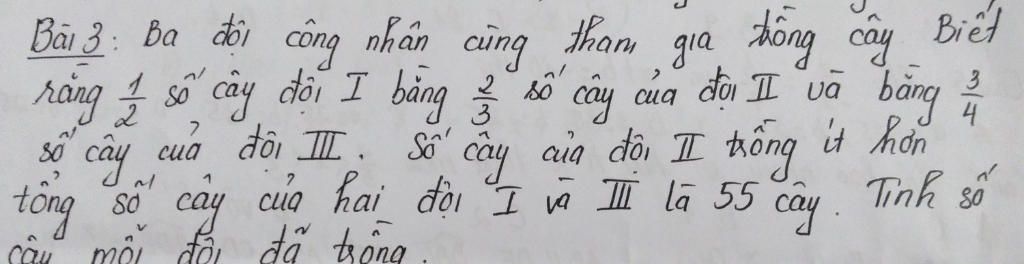 Bài 3: Ba đội công nhân cùng tham gia trồng cây Biết
rằng 1/2 số cây đội I bằng 2/3 số cây của đội II và bằng 3/4
số cây của đội III. Số cây của đội II trồng ít hơn
tổng số cây của hai đội I và III là 55 cây. Tính số
cây mỗi đội đã trồng.